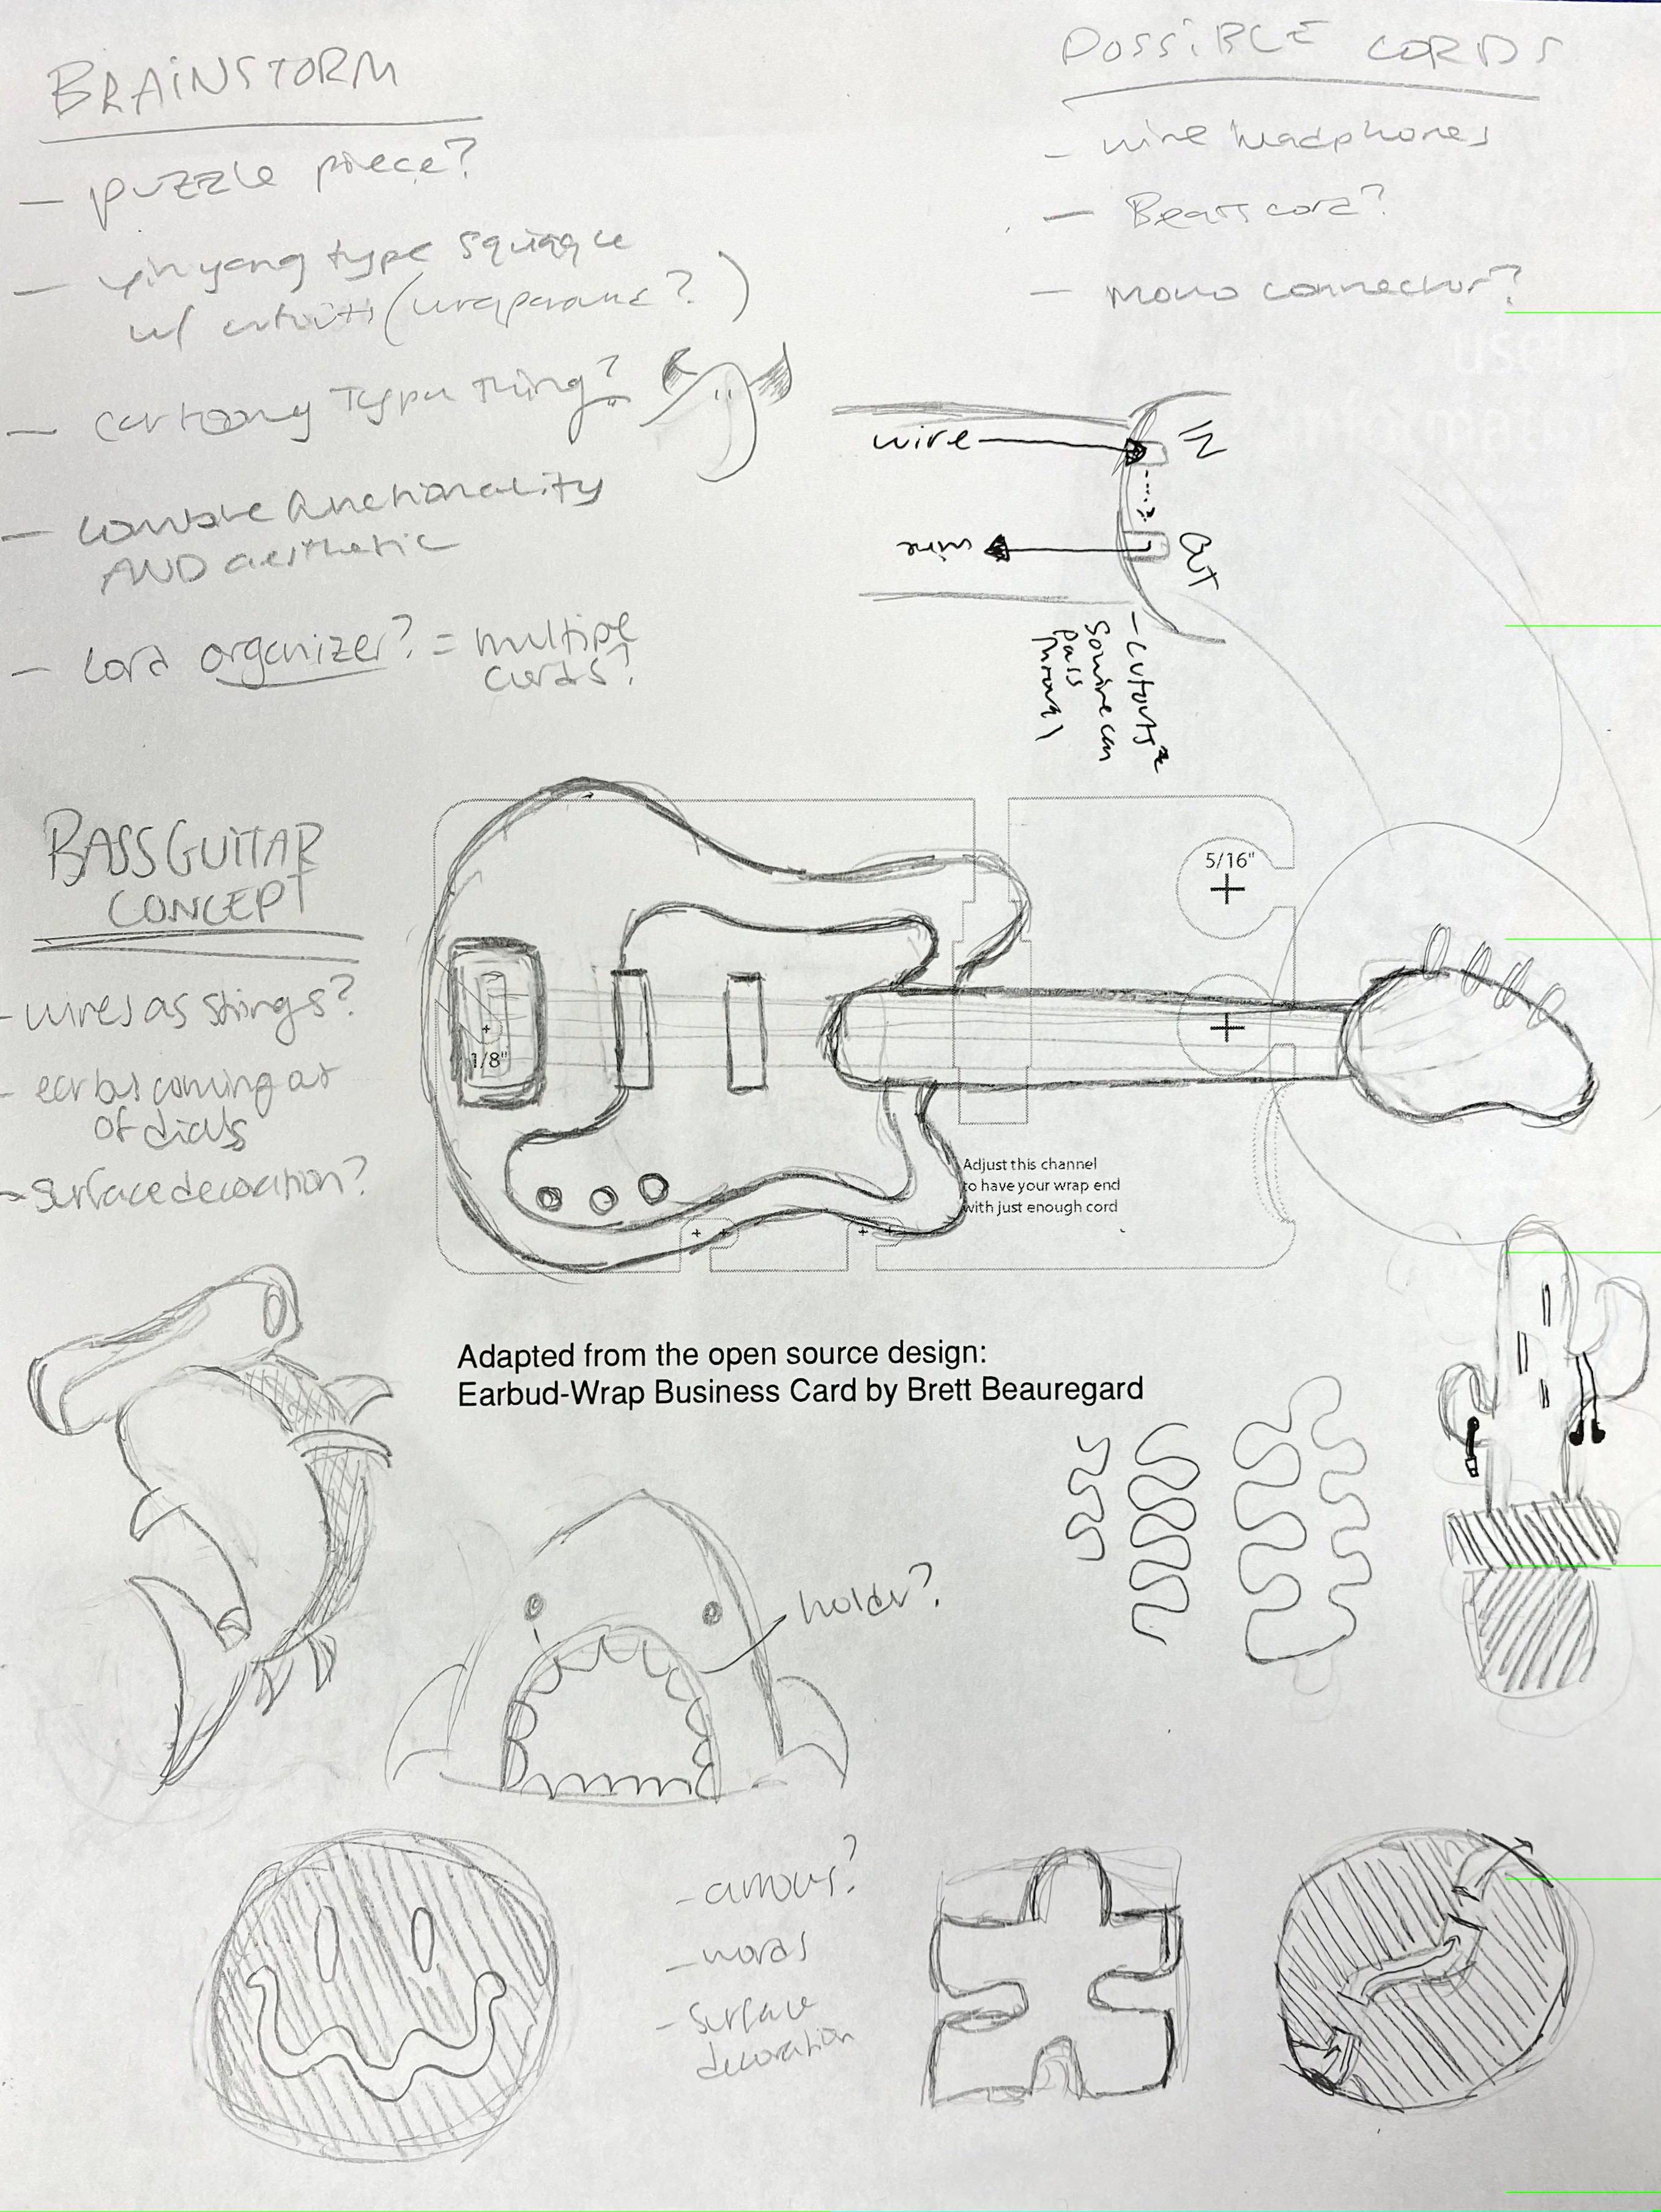 BRAINSTORM
- puzzle piece?
- yin yang type squiggle
w/ cutouts (wraparound?)
- cartoony type thing?
- combine functionality
AND aesthetic
- cord organizer? = multiple
cords?
POSSIBLE CORDS
- wire headphones
- Beats cord?
- mono connector?
wire
IN
wire
OUT
- cutouts
so wire can
pass
through
BASS GUITAR
CONCEPT
- wires as strings?
- earbuds coming out
of dials
- surface decoration?
5/16"
1/8"
Adjust this channel
to have your wrap end
with just enough cord
Adapted from the open source design:
Earbud-Wrap Business Card by Brett Beauregard
holder?
- arrows?
- words
- surface
decoration